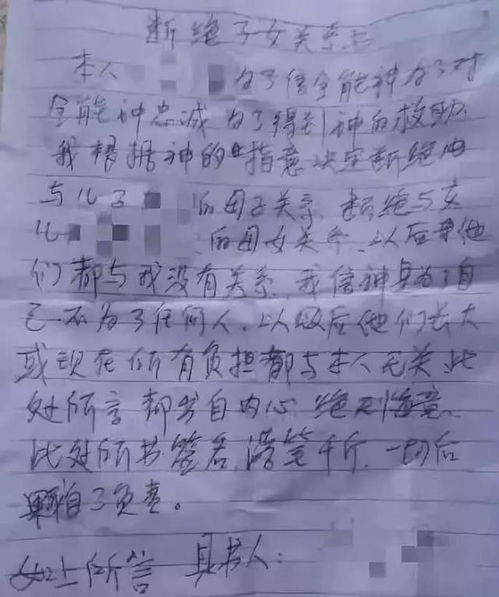 断绝子女关系书
本人 为了信全能神为了对
全能神忠诚为了得到神的救助
我根据神的旨意决定断绝
与儿子 的母子关系 断绝与女
儿 的母女关系 以后 他
们都与我没有关系 我信神 为了自
己不为了任何人. 以 后他们长大
或现在所有负担都与本人无关 此
处所言都出自内心 绝不悔意.
此处所书签名 落笔千斤 一切后
果自己负责。
如上所言 具书人: